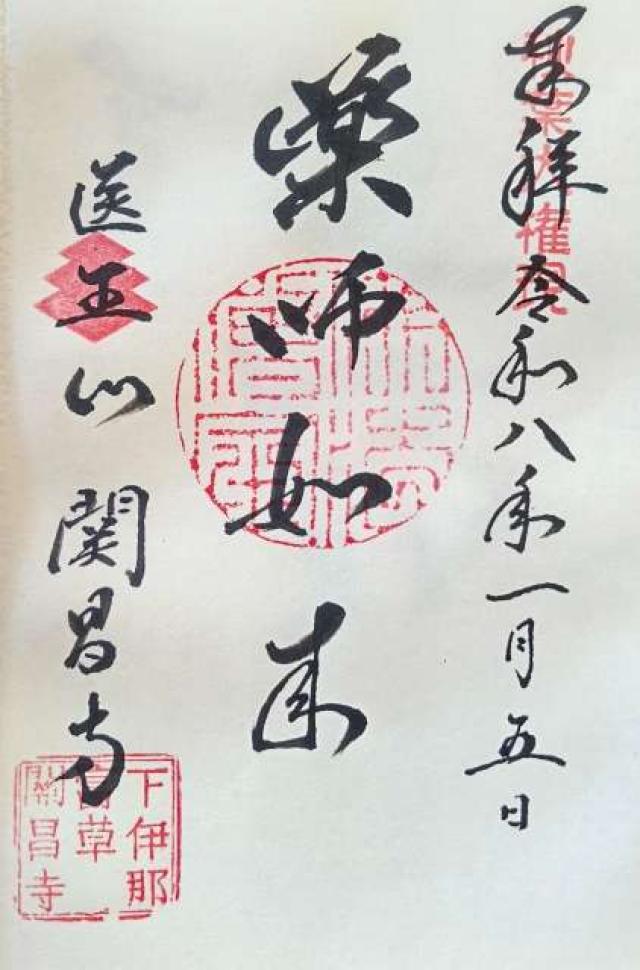 奉拝 令和八年一月五日
秋葉大権現
薬師如来
医王山 関昌寺
下伊那
富草
關昌寺